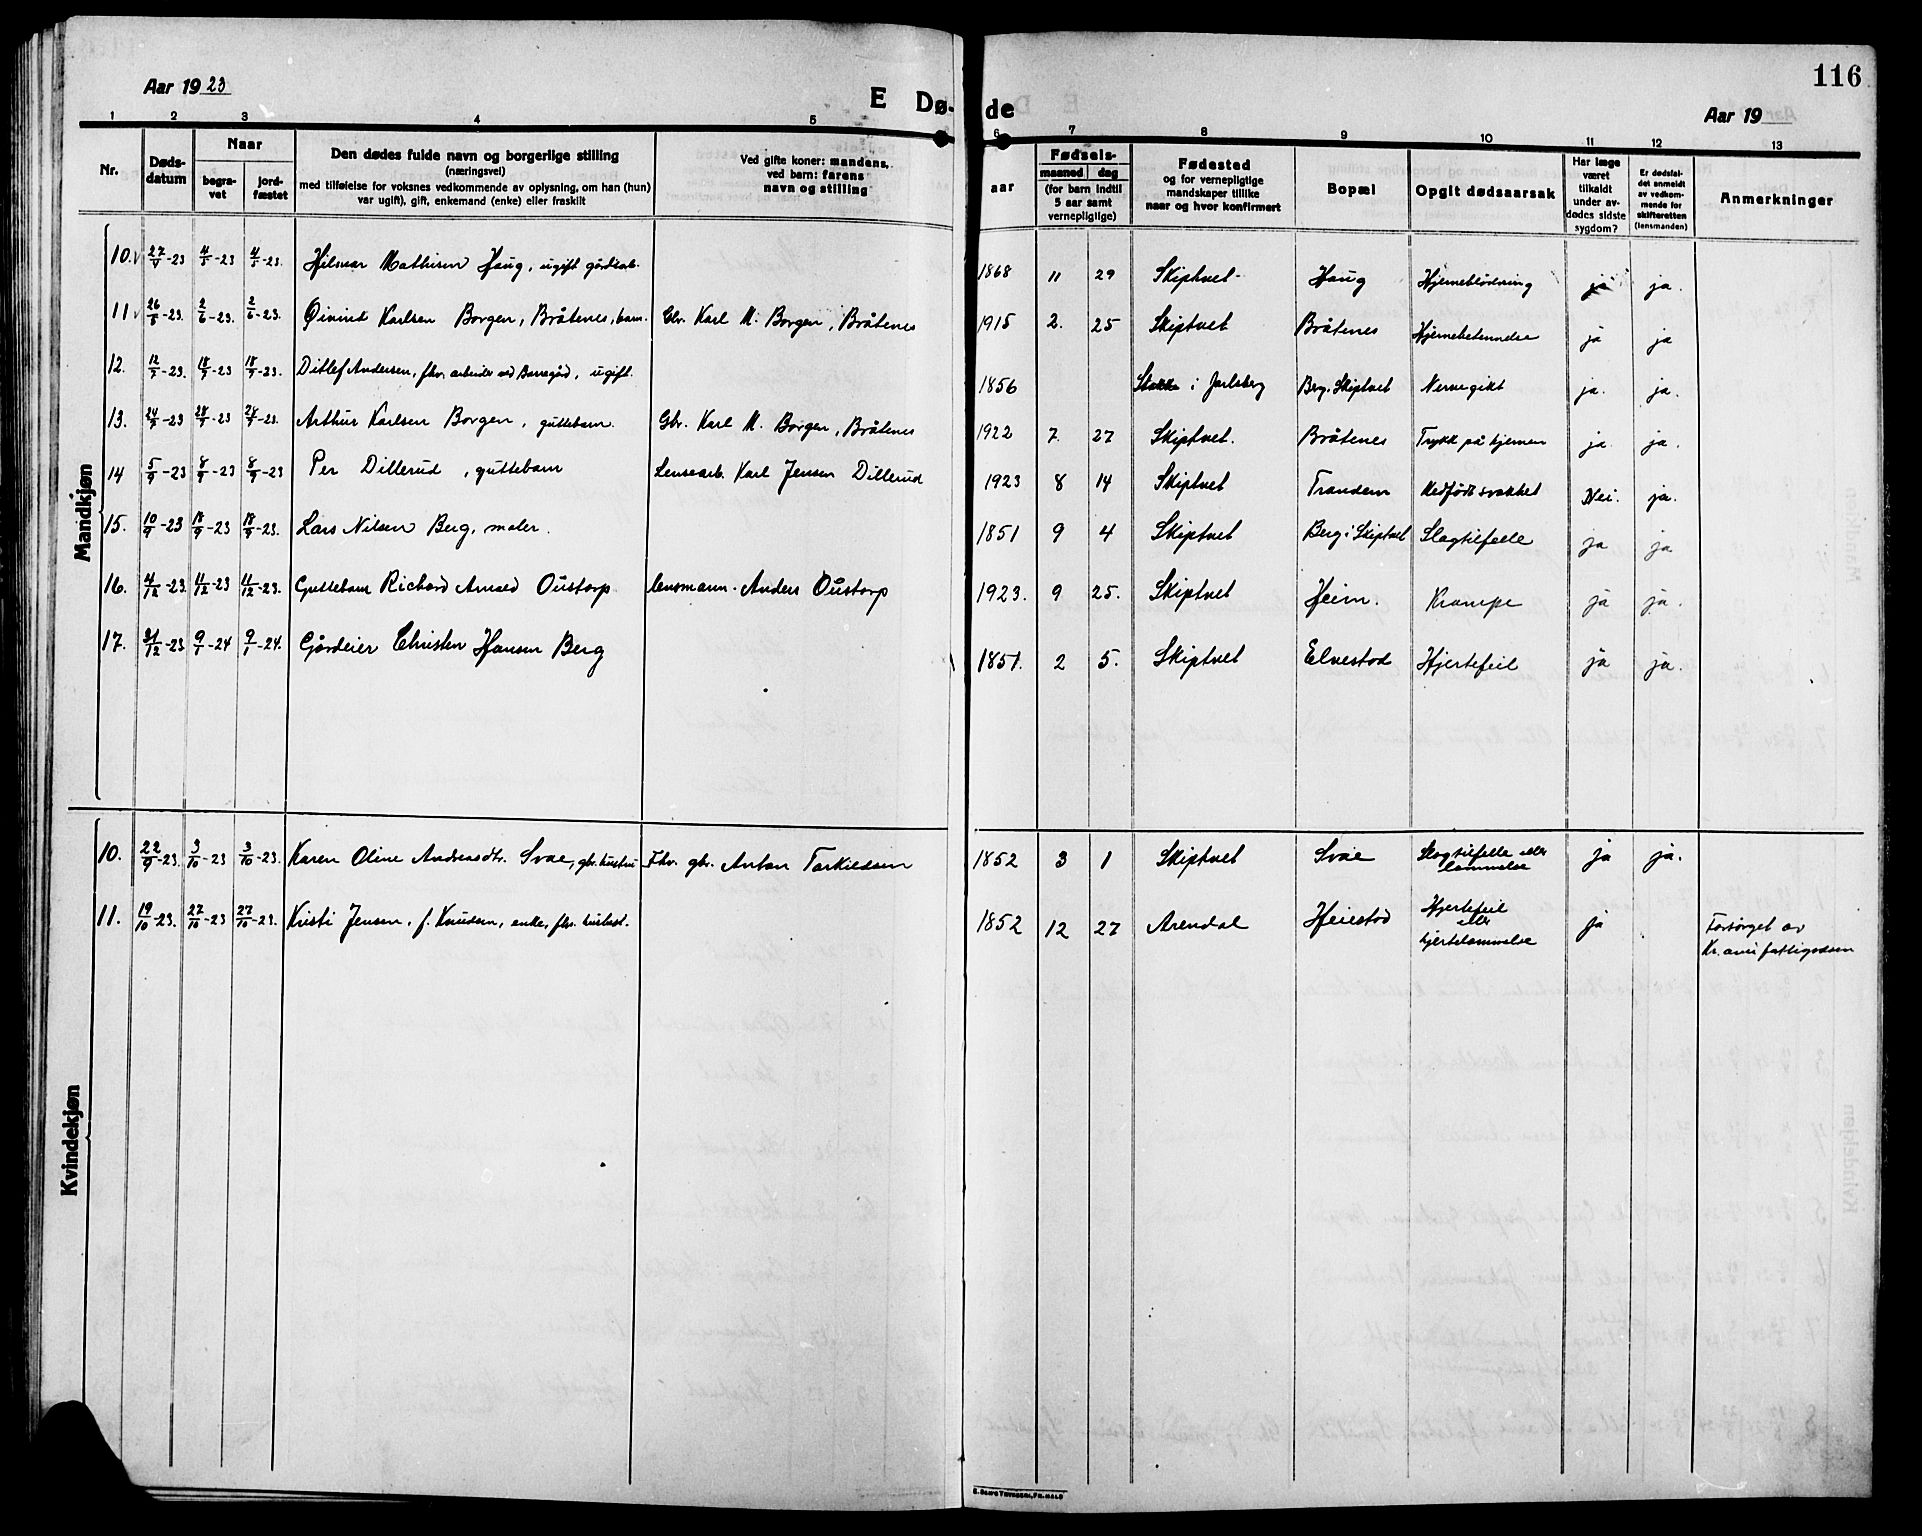 116
Aar 1923
E Dø-de
Aar 19
1 2 3 4 5 6 7 8 9 10 11 12 13
Nr.
Døds-
datum
Naar
begra-
vet
jord-
fæstet
Den dødes fulde navn og borgerlige stilling
(næringsvei)
med tilføielse for voksnes vedkommende av oplysning, om han (hun)
var ugift), gift, enkemand (enke) eller fraskilt
Ved gifte koner: mandens,
ved barn: farens
navn og stilling
aar
Fødsels-
maaned dag
(for barn indtil
5 aar samt
vernepligtige)
Fødested
og for vernepligtige
mandskaper tillike
naar og hvor konfirmert
Bopæl
Opgit dødsaarsak
Har læge
været
tilkaldt
under av-
dødes sidste
sygdom?
Er dødsfal-
det anmeldt
av vedkom-
mende for
skifteretten
(lensmanden)
Anmerkninger
Mandkjøn
10. 27/V-23 4/5-23 4/5-23. Hilmar Mathisen Haug, ugift gårdarb. 1868 11 29 Skiptvet Haug Hjerneblødning ja ja.
11 26/5-23. 2/6-23. 2/6-23. Øivind Karlsen Borgen, Bråtenes, barn. Gbr. Karl M. Borgen, Bråtenes 1915 2. 25 Skiptvet Bråtenes Hjernebetennelse ja ja
12. 12/7-23. 18/7-23 18/7-23. Ditlef Andersen, fhv. arbeider ved Borregård, ugift. 1856 Stokke i Jarlsberg Berg i Skiptvet Nervegikt ja. ja.
13. 24/7-23 28/7-23 28/7-23. Arthur Karlsen Borgen, guttebarn. Gbr. Karl M. Borgen, Bråtenes 1922 7. 27 Skiptvet. Bråtenes Trykk på hjernen ja ja.
14 5/9-23 8/9-23 8/9-23 Per Dillerud, guttebarn Lensearb. Karl Jensen Dillerud 1923 8 14 Skiptvet Trandem Medfødt svakhet Nei. ja.
15. 10/9-23 18/9-23 18/9-23. Lars Nilsen Berg, maler. 1851 9 4 Skiptvet Berg i Skiptvet Slagtilfelle ja ja
16. 4/12-23. 11/12-23 11/12-23. Guttebarn Richard Amsed Oustorp Lensmann Anders Oustorp 1923. 9 25. Skiptvet Heim. Krampe ja ja.
17. 31/12-23 9/1-24 9/1-24. Gårdeier Christen Hansen Berg 1851. 2 5. Skiptvet Elvestad Hjertefeil ja ja.
Kvindekjøn
10. 22/9-23. 3/10-23 3/10-23. Karen Oline Andreasdtr. Svae, gbr. hustru Fhv. gbr. Anton Torkildsen 1852 3 1 Skiptvet Svae Slagtilfelle eller
lammelse ja ja.
11. 19/10-23. 27/10-23 27/10-23. Kristi Jensen, f. Knudsen, enke, fhv. husbest. 1852 12 27 Arendal Heiestad Hjertefeil
eller
hjertelammelse ja Forsørget av
Kr.ania fattigvesen